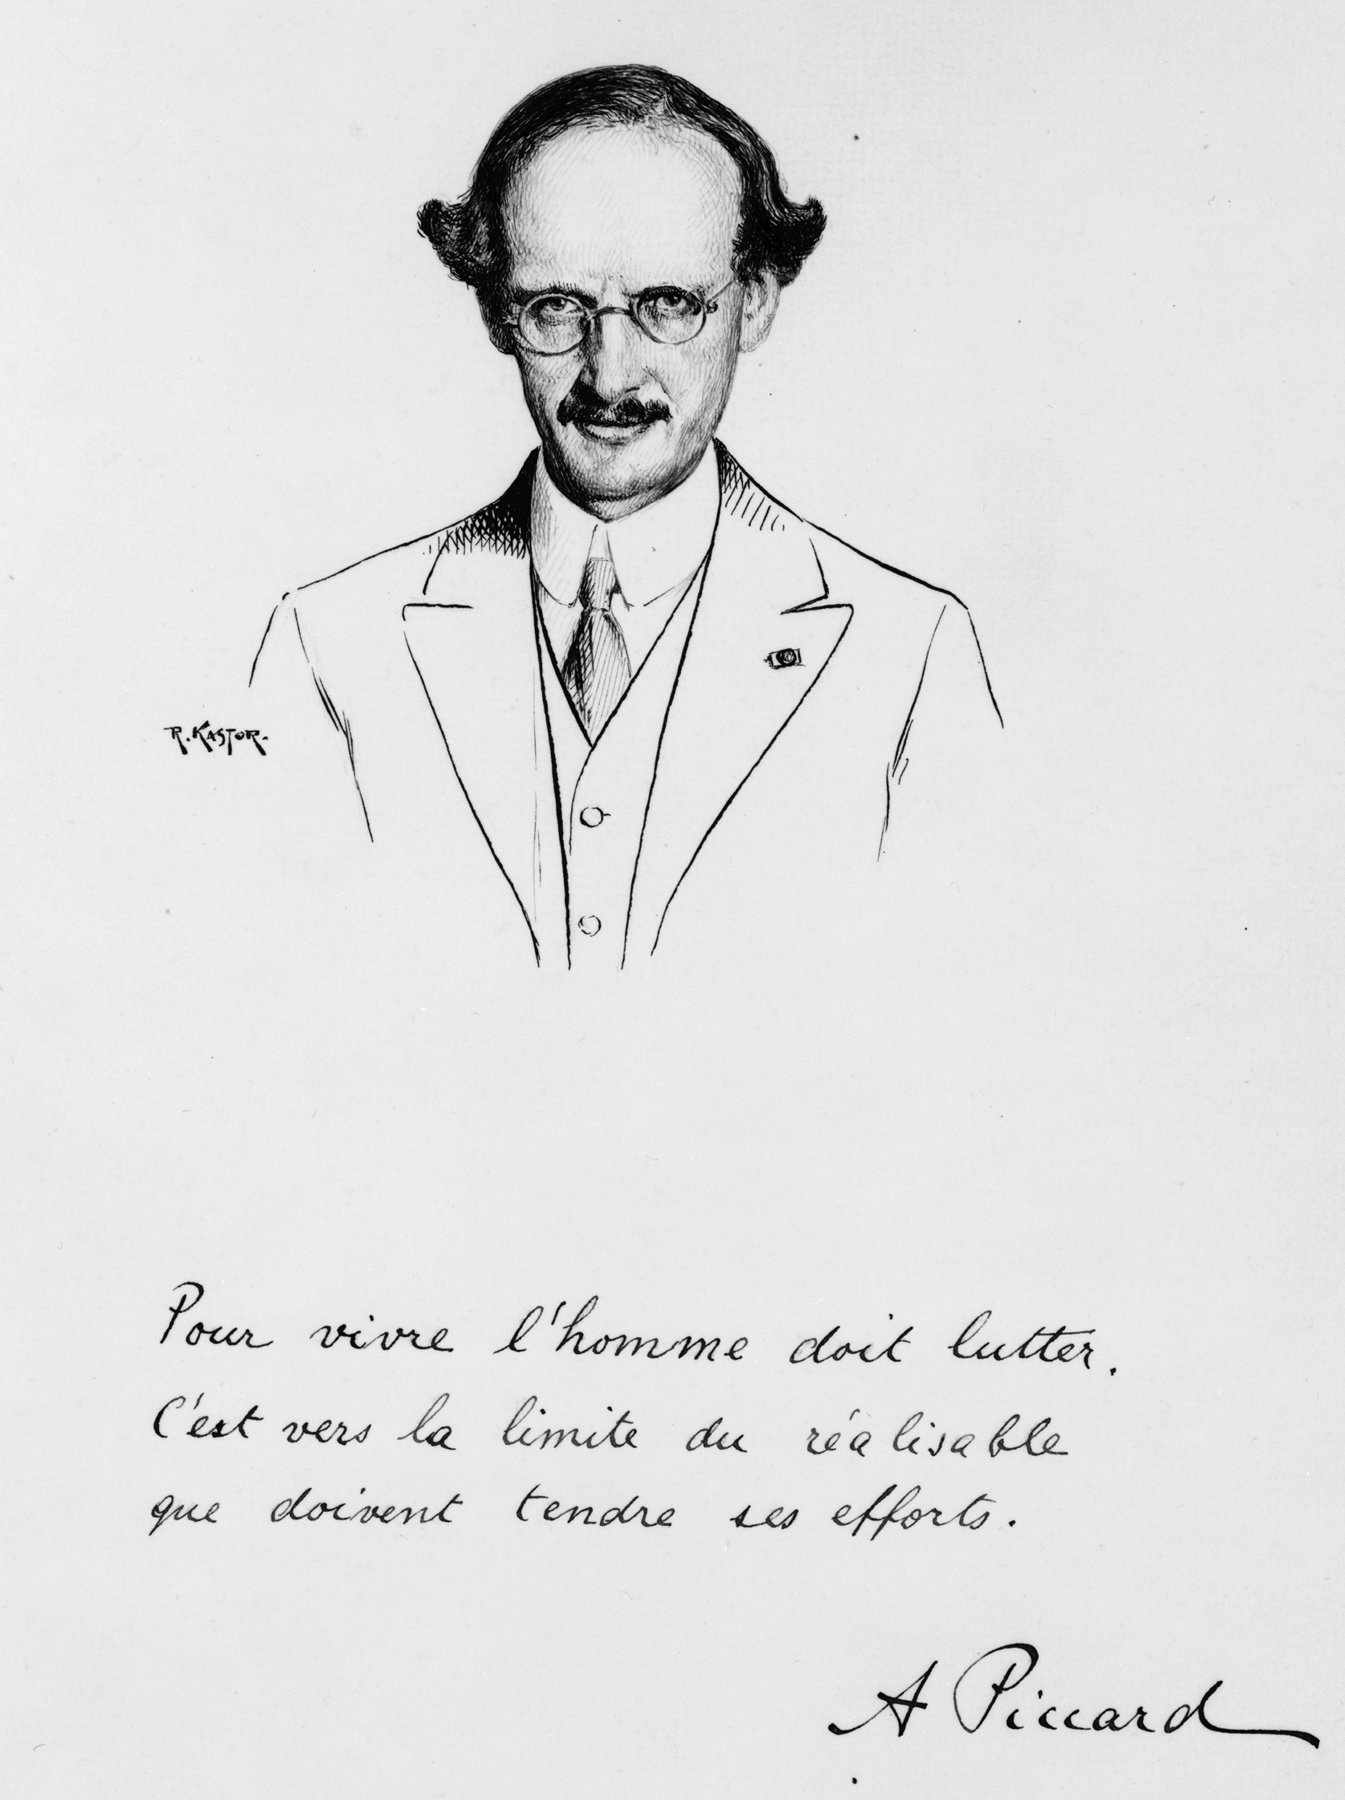 R. KASTOR.
Pour vivre l'homme doit lutter.
C'est vers la limite du réalisable
que doivent tendre ses efforts.
A Piccard